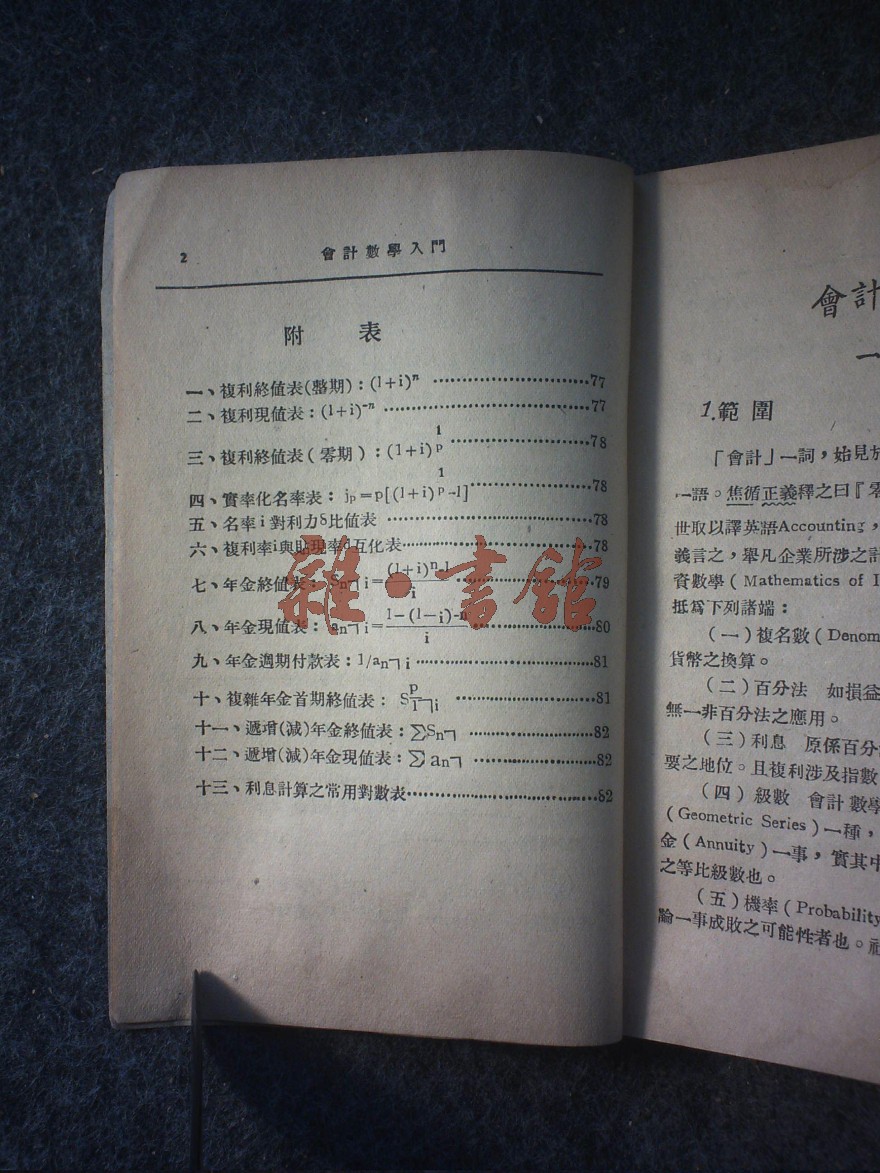 2 會計數學入門
附 表
一、複利終值表(整期)：(1+i)ⁿ ………77
二、複利現值表：(1+i)⁻ⁿ ………77
三、複利終值表(零期)：(1+i)^(1/p) ………78
四、實率化名率表： jp=p[(1+i)^(1/p)-1] ………78
五、名率i對利力δ比值表 ………78
六、複利率i與貼現率d互化表 ………78
七、年金終值表： Sn┐i=((1+i)ⁿ-1)/i ………79
八、年金現值表：an┐i=(1-(1-i)⁻ⁿ)/i ………80
九、年金週期付款表：1/an┐i ………81
十、複雜年金首期終值表： S(p)1┐i ………81
十一、遞增(減)年金終值表：∑Sn┐ ………82
十二、遞增(減)年金現值表：∑an┐ ………82
十三、利息計算之常用對數表 ………82
雜·書館
會計
一
1.範圍
「會計」一詞，始見於
一語。焦循正義釋之曰『零
世取以譯英語Accounting，
義言之，舉凡企業所涉之計
資數學(Mathematics of I
抵爲下列諸端：
(一)複名數(Denom
貨幣之換算。
(二)百分法 如損益
無一非百分法之應用。
(三)利息 原係百分
要之地位。且複利涉及指數
(四)級數 會計數學
(Geometric Series)一種，
金(Annuity)一事，實其中
之等比級數也。
(五)機率(Probability
論一事成敗之可能性者也。